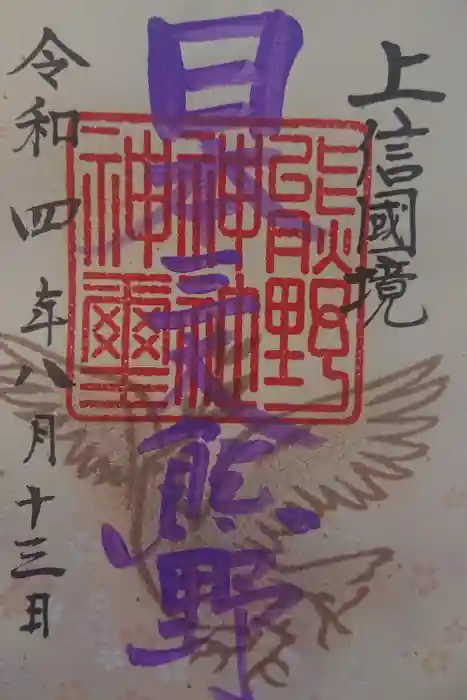 上信國境
日本三大熊野
熊野
神社
神璽
令和四年八月十三日